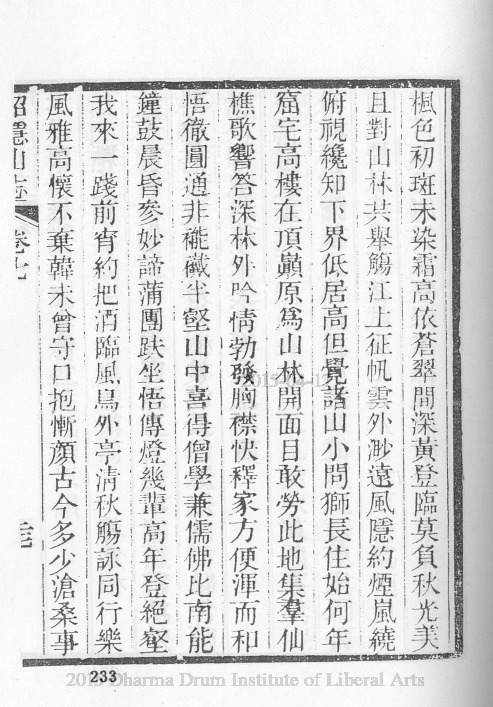 楓色初斑未染霜高依蒼翠間深黃登臨莫負秋光美
且對山林共舉觴江上征帆雲外渺遠風隱約煙嵐繞
俯視纔知下界低居高但覺諸山小問獅長住始何年
窟宅高樓在頂巔原爲山林開面目敢勞此地集羣仙
樵歌響答深林外吟情勃發胸襟快釋家方便渾而和
悟徹圓通非褦襶半壑山中喜得僧學兼儒佛比南能
鐘鼓晨昏參妙諦蒲團趺坐悟傳燈幾輩高年登絕壑
我來一踐前宵約把酒臨風鳥外亭清秋觴詠同行樂
風雅高懷不棄韓未曾守口抱慚顏古今多少滄桑事
招隱山志
卷七
三
233
2015-12-1
Dharma Drum Institute of Liberal Arts